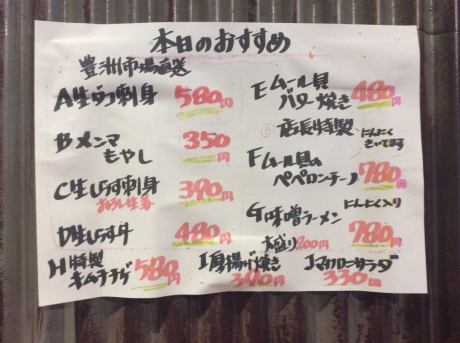 本日のおすすめ
豊洲市場直送
A生うに刺身 580円
Bメンマ
もやし 350円
C生しらす刺身 390円
おろし生姜
D生しらす丼 480円
Eムール貝
バター焼き 480円
店長特製 にんにく
きいてます
Fムール貝の
ペペロンチーノ 780円
にんにく入り
G味噌ラーメン 780円
大盛り200円
H特製
キムチチゲ 580円
I厚揚げ焼き
340円
Jマカロニサラダ
330円